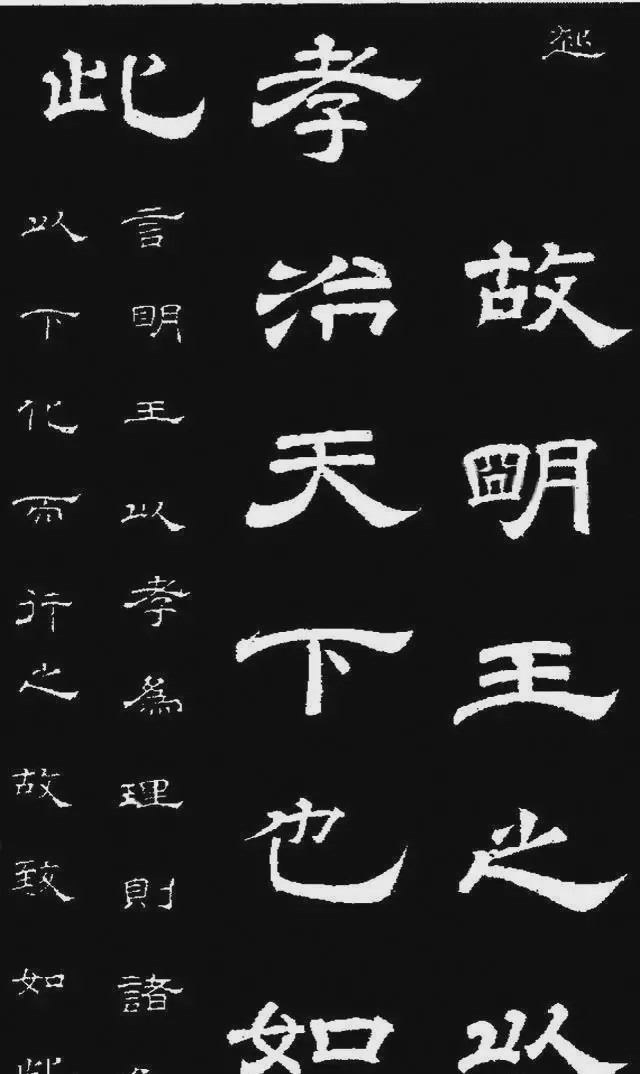 起
故明王之以
孝治天下也如
此
言明王以孝為理則諸
以下化而行之故致如此